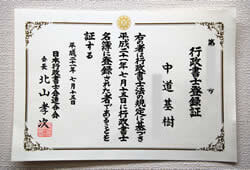 行政書士登録証
第　号
中道基樹
右の者は行政書士法の規定に基づき
平成二一年七月十五日に行政書士
名簿に登録された者であることを
証する
平成二一年七月十五日
日本行政書士会連合会
会長 北山孝次